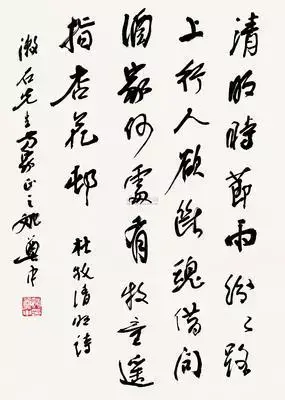 清明時節雨紛々路
上行人欲斷魂借問
酒家何處有牧童遙
指杏花邨
杜牧清明詩
石先生方家正之姚奠中